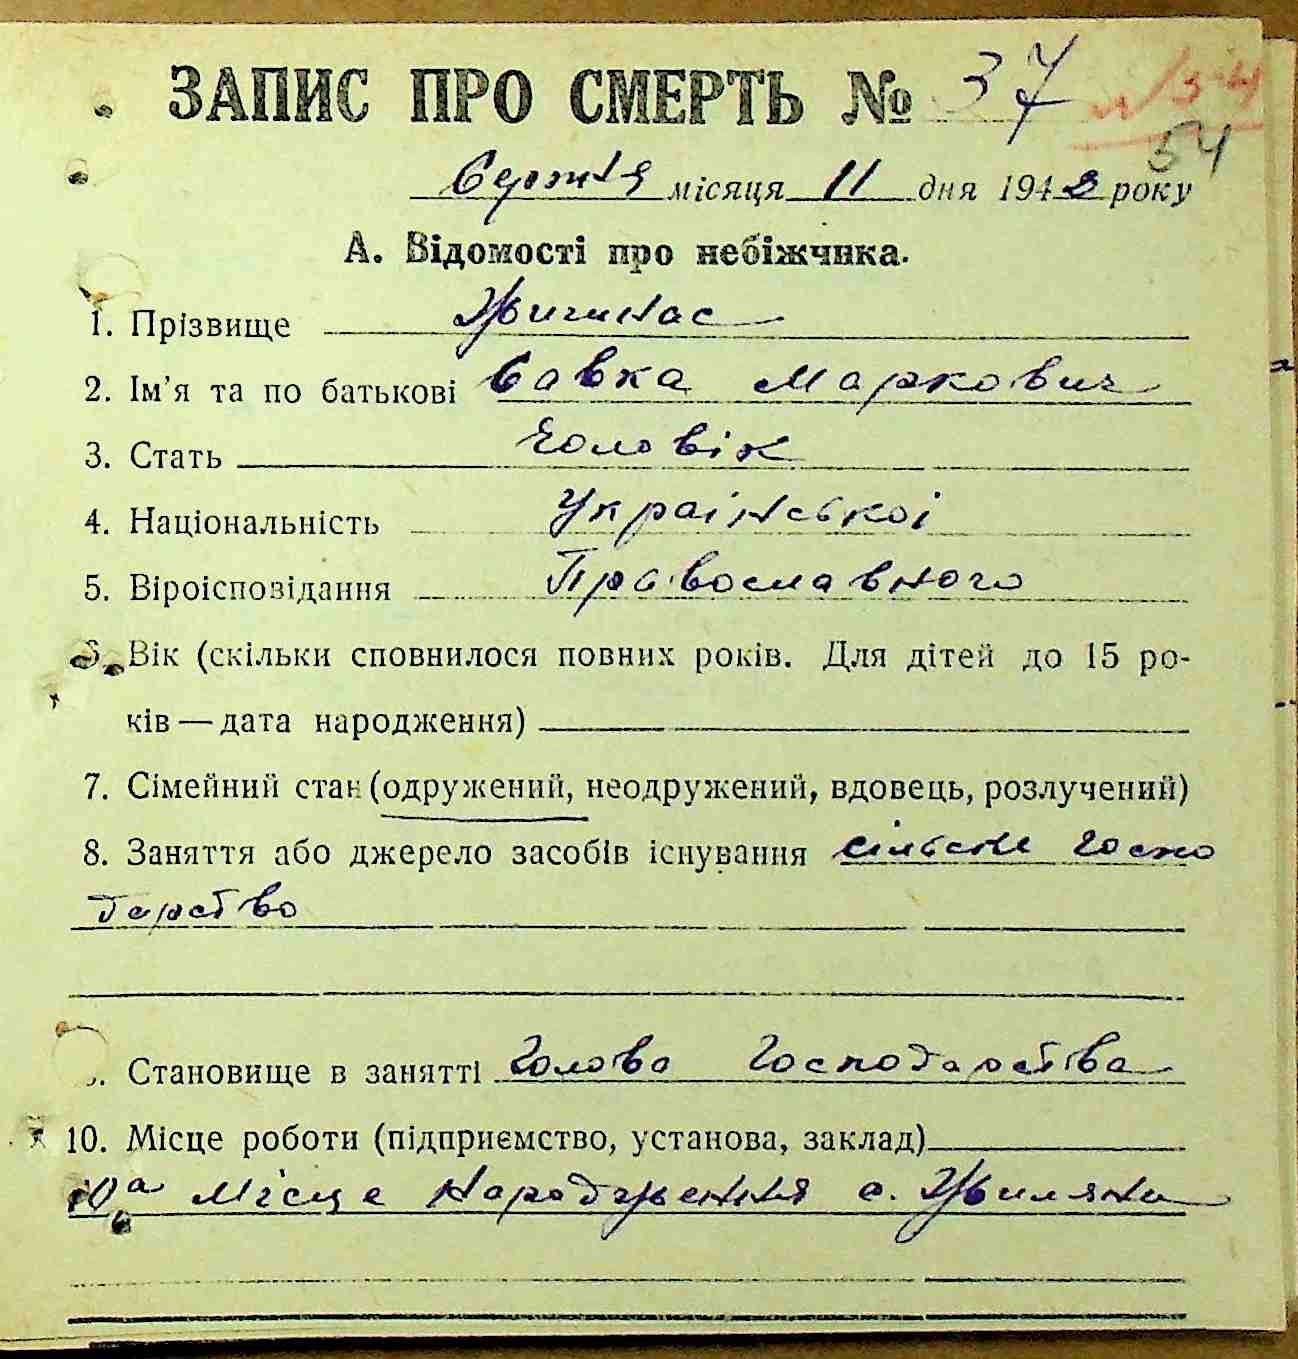 ЗАПИС ПРО СМЕРТЬ № 37
54
Серпня місяця 11 дня 1942 року
А. Відомості про небіжчика.
1. Прізвище
2. Ім'я та по батькові Савка Маркович
3. Стать Чоловік
4. Національність Української
5. Віроісповідання Православного
6. Вік (скільки сповнилося повних років. Для дітей до 15 ро-
ків — дата народження)
7. Сімейний стан (одружений, неодружений, вдовець, розлучений)
8. Заняття або джерело засобів існування сільське госпо
дарство
9. Становище в занятті Голова Господарства
10. Місце роботи (підприємство, установа, заклад)
10а Місце народження с. Жиляни